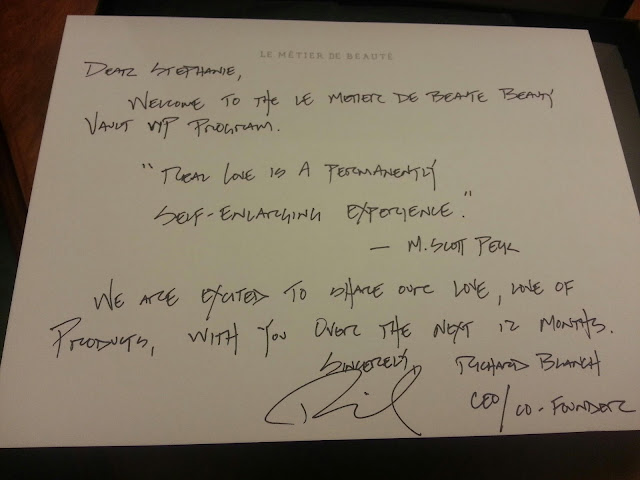 LE MÉTIER DE BEAUTÉ
DEAR STEPHANIE,
WELCOME TO THE LE METIER DE BEAUTE BEAUTY
VAULT VIP PROGRAM.
"REAL LOVE IS A PERMANENTLY
SELF-ENLARGING EXPERIENCE."
— M. SCOTT PECK
WE ARE EXCITED TO SHARE OUR LOVE, LOVE OF
PRODUCTS, WITH YOU OVER THE NEXT 12 MONTHS.
SINCERELY, RICHARD BLANCH
CEO/CO-FOUNDER